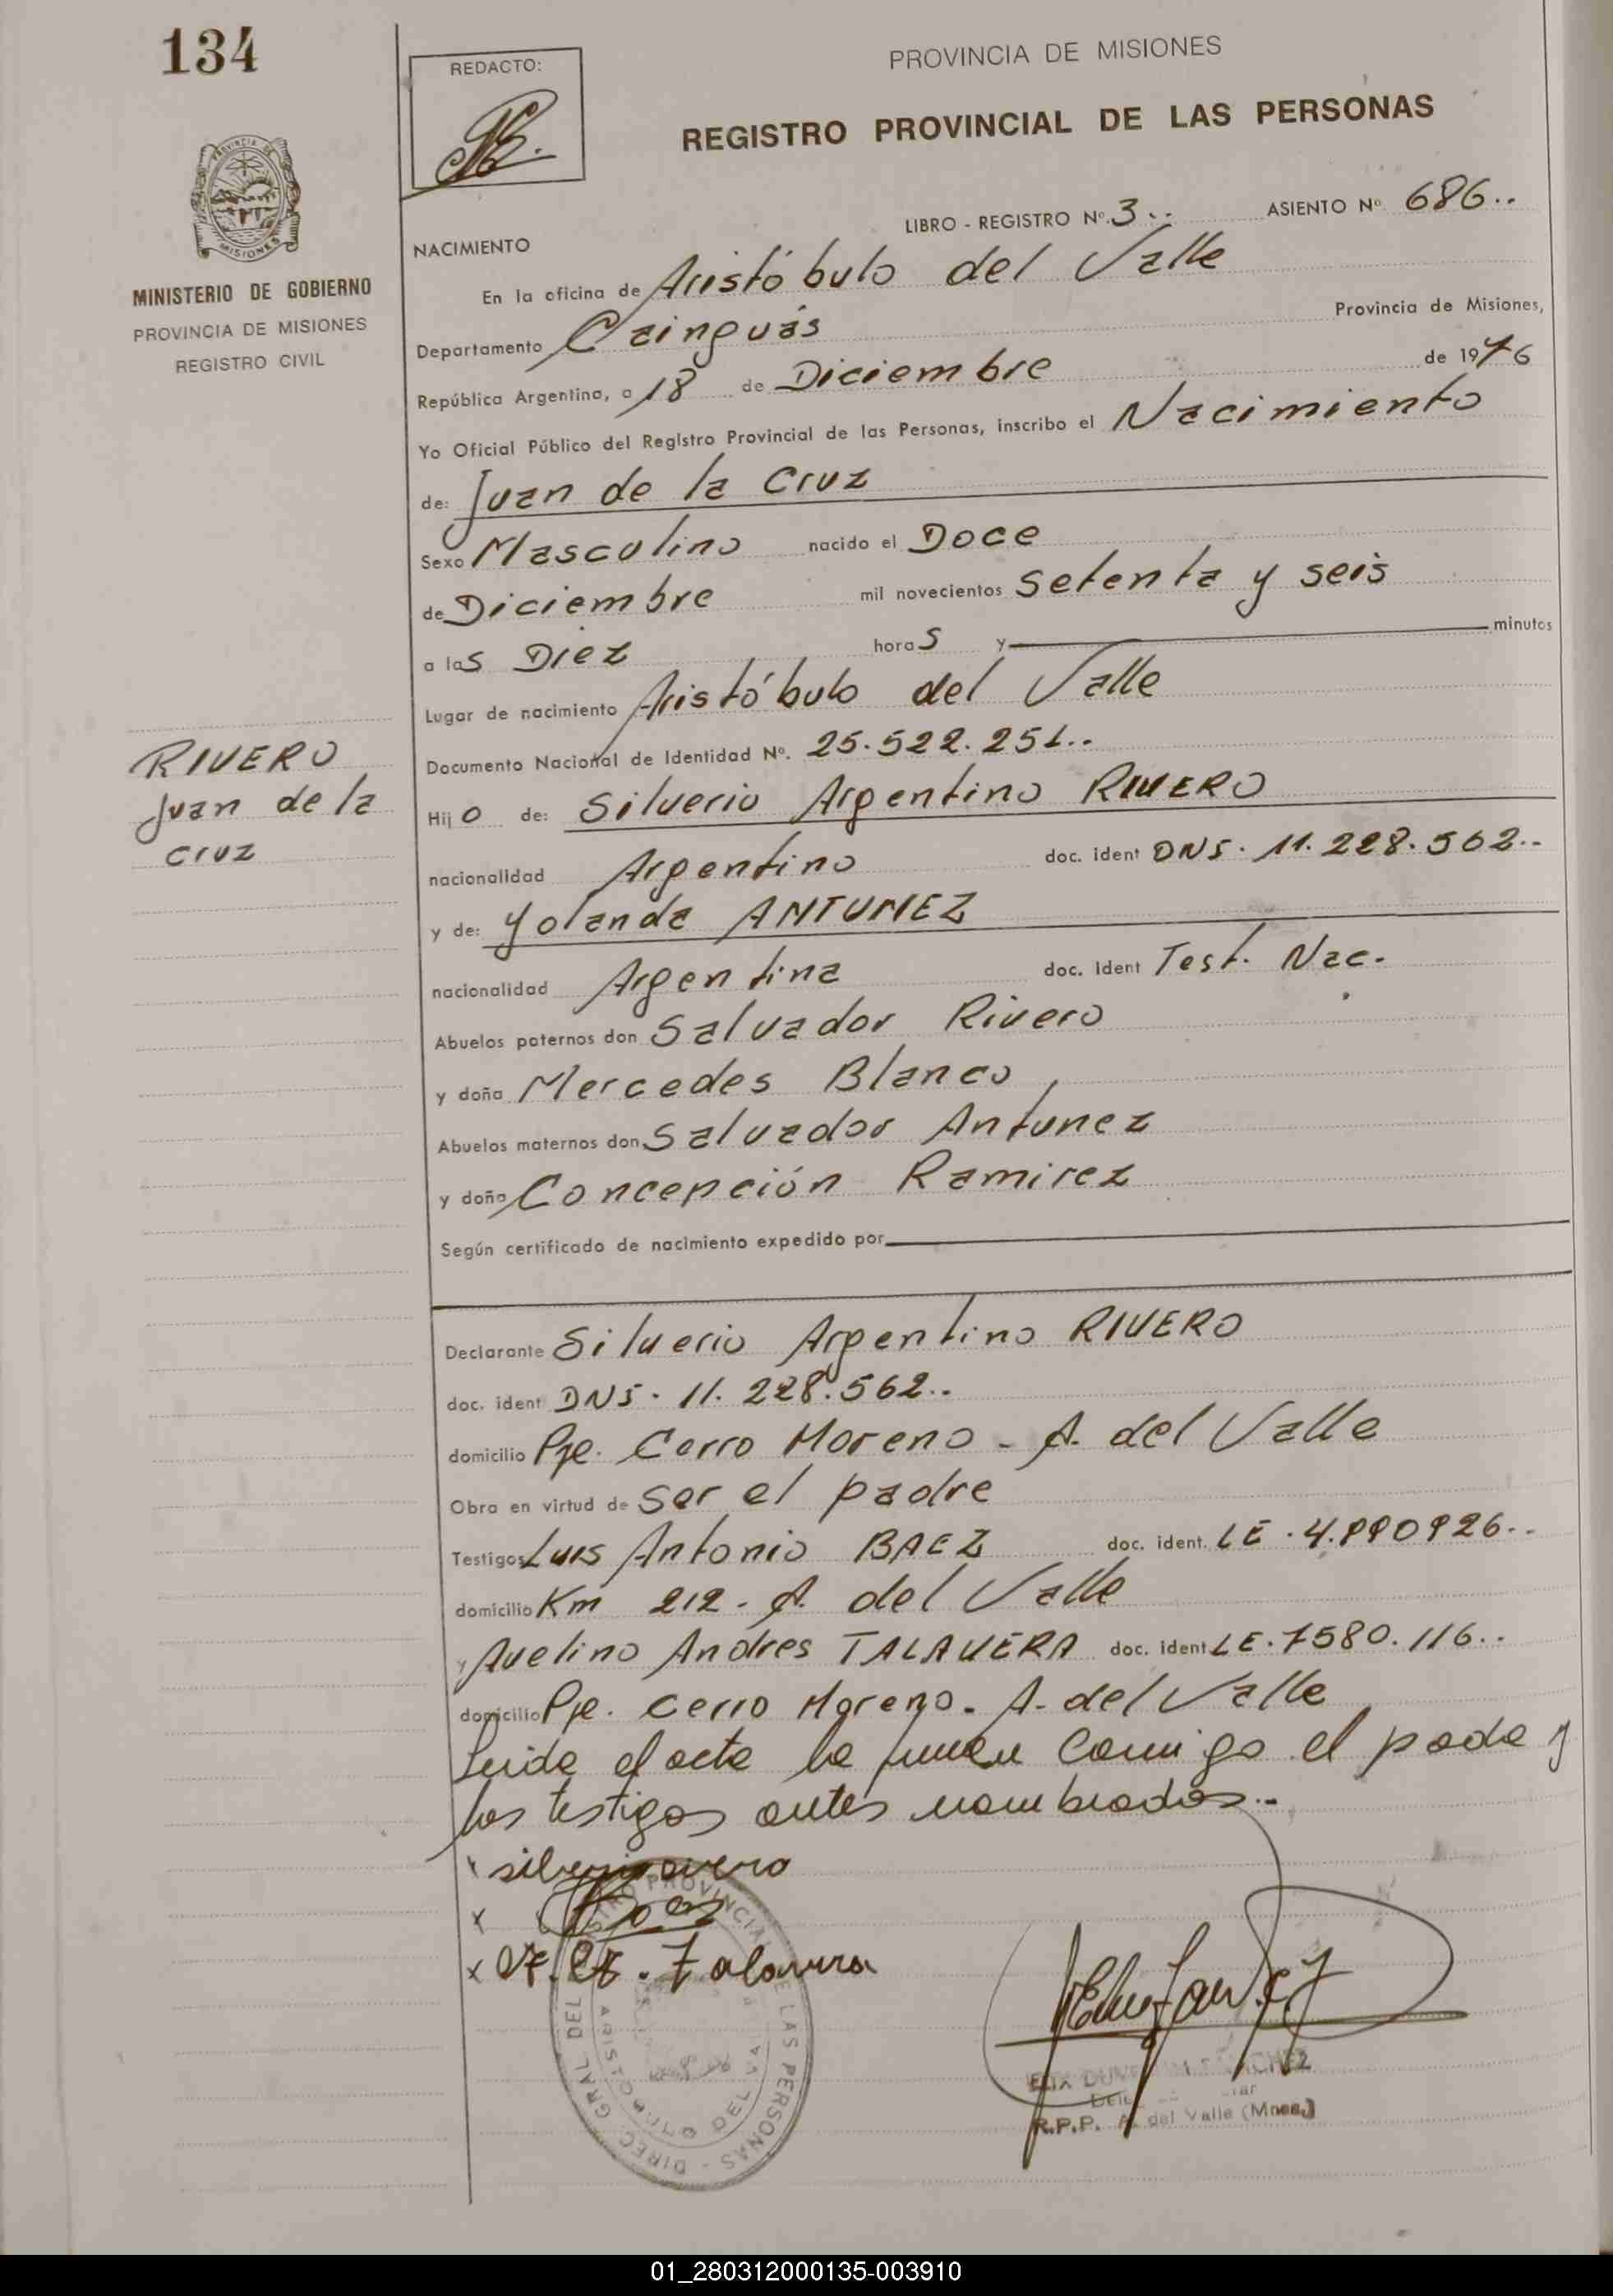 134
REDACTO:
PROVINCIA DE MISIONES
REGISTRO PROVINCIAL DE LAS PERSONAS
PROVINCIA DE
MISIONES
MINISTERIO DE GOBIERNO
PROVINCIA DE MISIONES
REGISTRO CIVIL
LIBRO - REGISTRO Nº. 3.. ASIENTO Nº 686..
NACIMIENTO
En la oficina de Aristóbulo del Valle
Departamento Cainguás Provincia de Misiones,
República Argentina, a 18 de Diciembre de 1976
Yo Oficial Público del Registro Provincial de las Personas, inscribo el Nacimiento
de: Juan de la Cruz
Sexo Masculino nacido el Doce
de Diciembre mil novecientos setenta y seis
a las Diez horas y minutos
Lugar de nacimiento Aristóbulo del Valle
Documento Nacional de Identidad Nº. 25.522.251..
RIVERO
Juan de la
Cruz
Hijo de: Silverio Argentino RIVERO
nacionalidad Argentino doc. ident DNI. 11.228.562..
y de: Yolanda ANTUNEZ
nacionalidad Argentina doc. ident Test. Nac.
Abuelos paternos don Salvador Rivero
y doña Mercedes Blanco
Abuelos maternos don Salvador Antunez
y doña Concepción Ramirez
Según certificado de nacimiento expedido por
Declarante Silverio Argentino RIVERO
doc. ident DNI. 11.228.562..
domicilio Pje. Cerro Moreno - A. del Valle
Obra en virtud de ser el padre
Testigos Luis Antonio BAEZ doc. ident. LE.
domicilio Km 212 - A. del Valle
y Avelino Andres TALAVERA doc. ident LE. 7580.116..
domicilio Pje. Cerro Moreno - A. del Valle
Leida el acta la firman conmigo el padre y
los testigos antes nombrados..
x silverio rivero
x Baez
x Talavera
DIREC. GRAL DEL REGISTRO PROVINCIAL DE LAS PERSONAS -
ARISTOBULO DEL VALLE
R.P.P. A. del Valle (Mnes.)
01_280312000135-003910